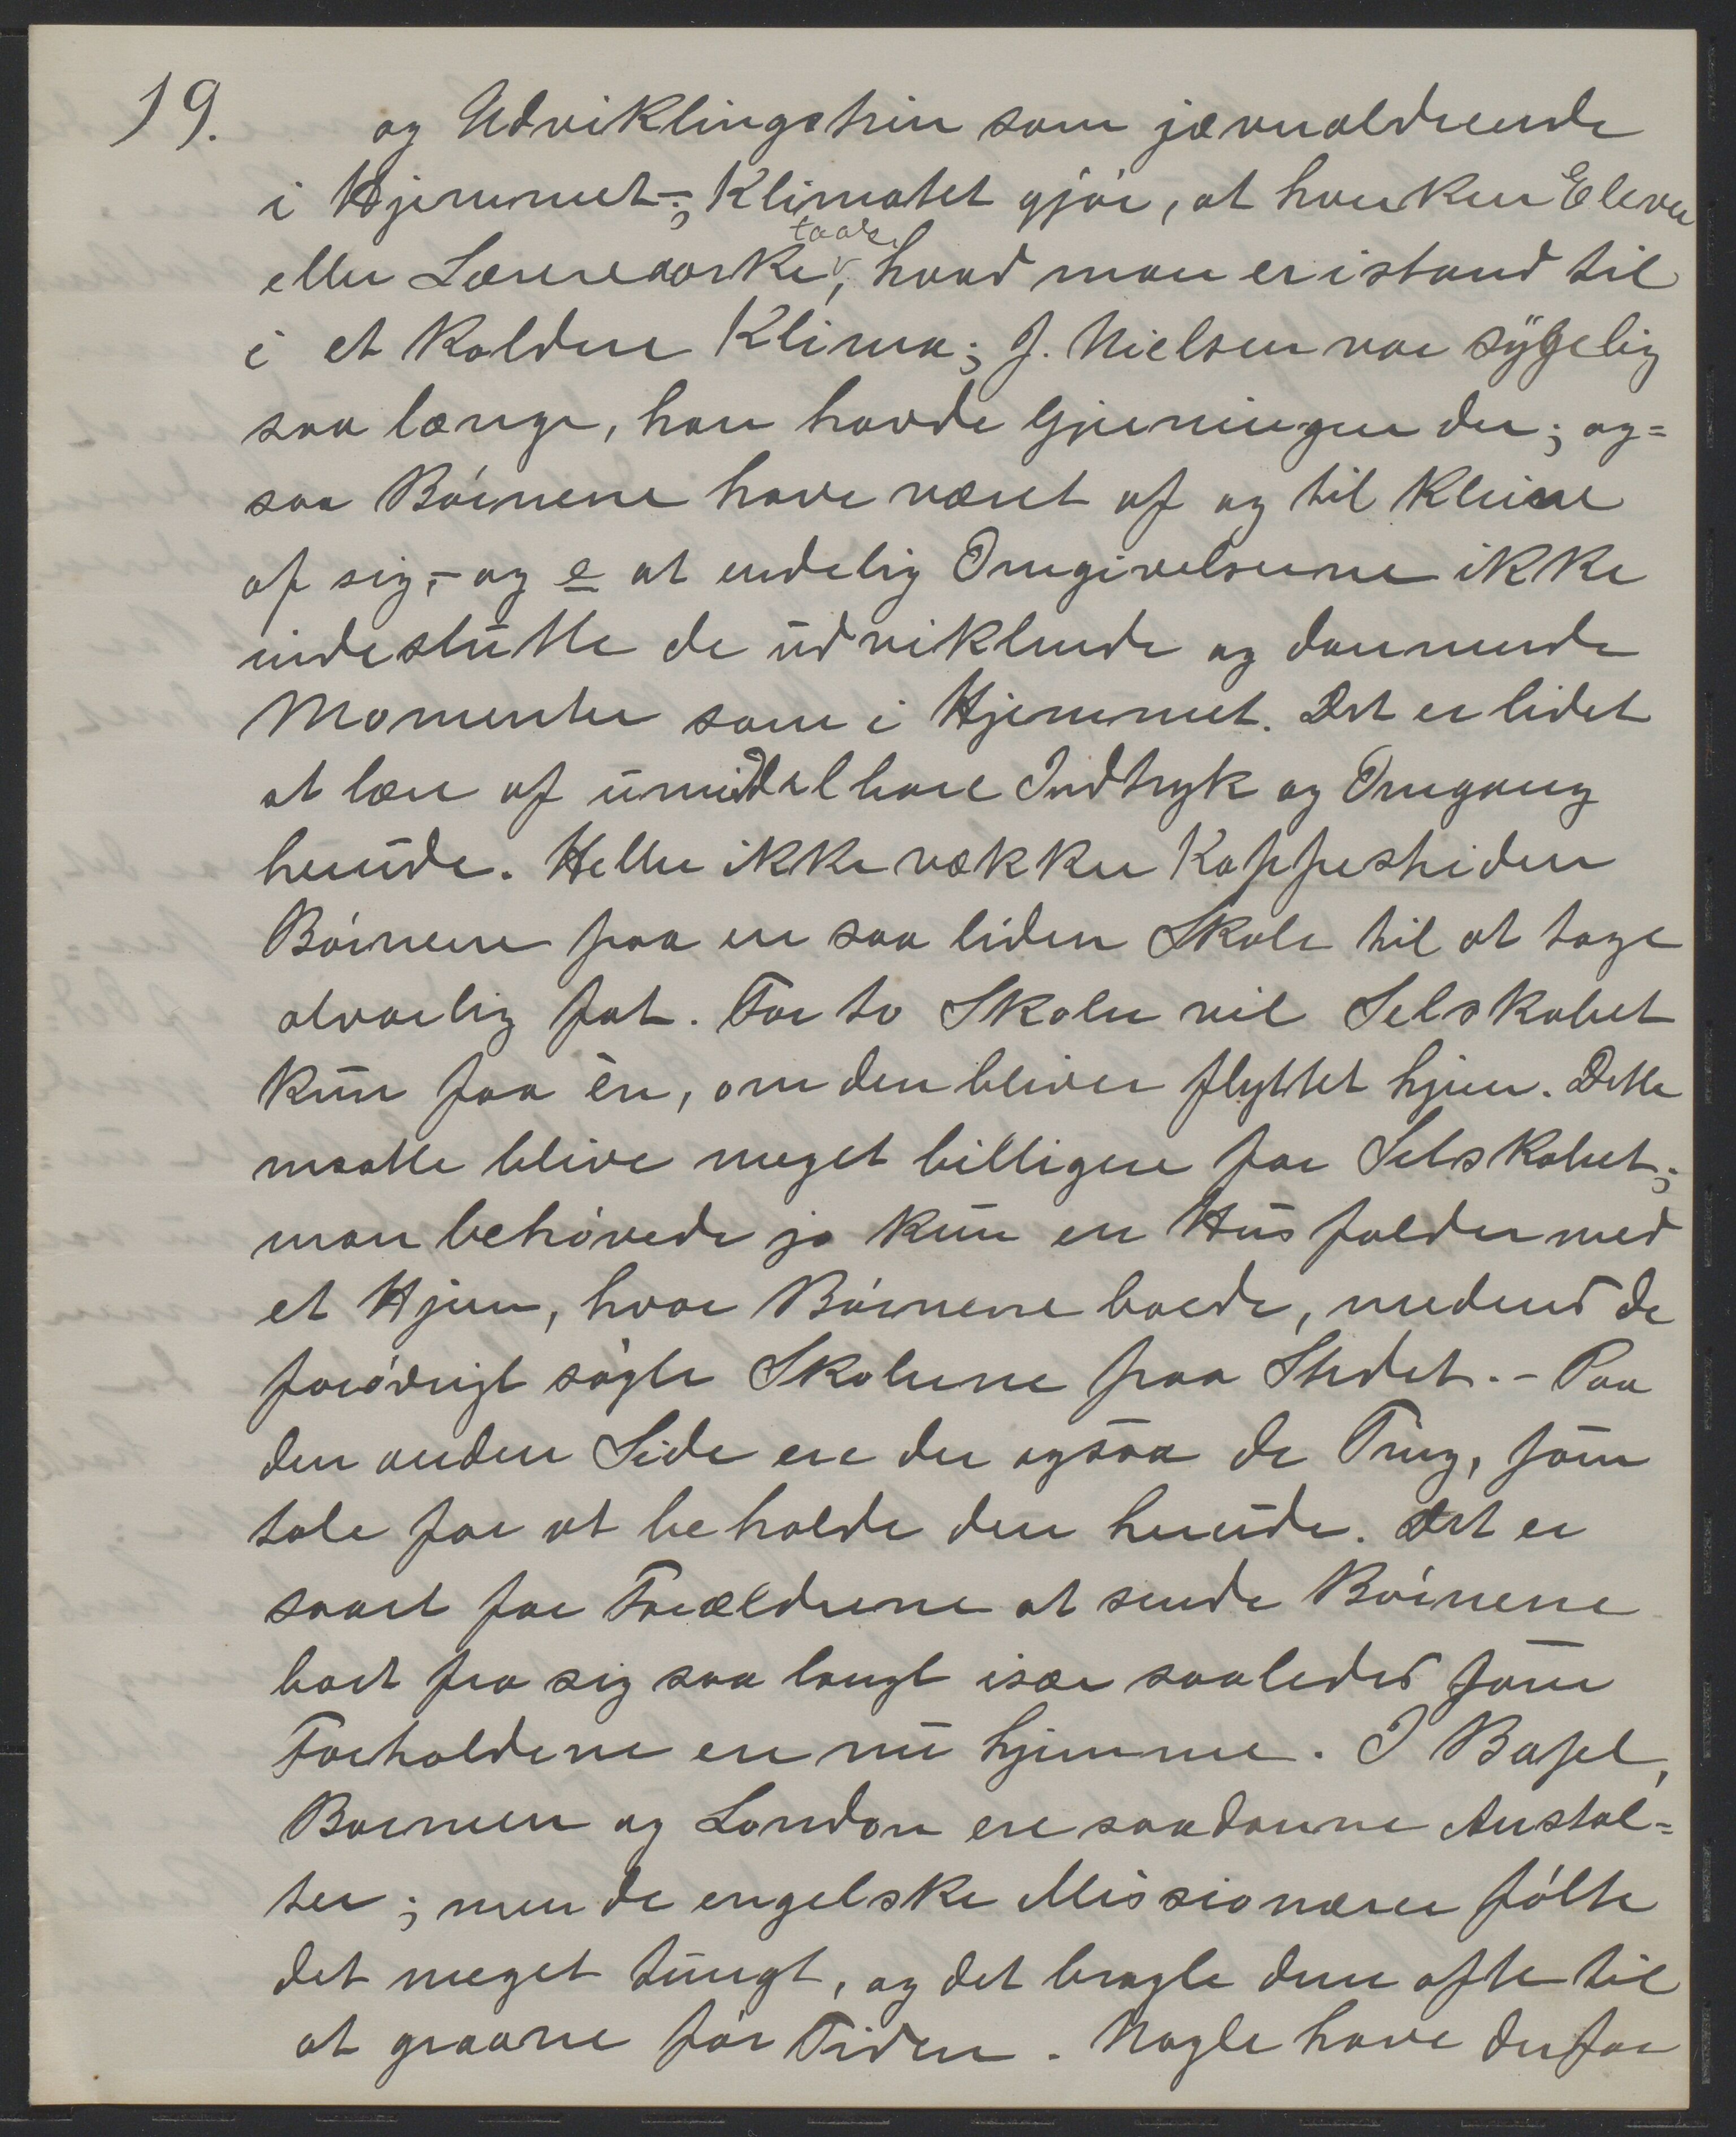 19. og Udviklingstrin som jævnaldrende
i Hjemmet-; Klimatet gjör, at hverken Elever
eller Lærere orke taale, hvad man er istand til
i et koldere Klima; J. Nielsen var sygelig
saa længe, han havde Gjerningen der; og=
saa Börnene have været af og til kleine
af sig,- og e at endelig Omgivelserne ikke
indeslutte de udviklende og dannende
Momenter som i Hjemmet. Det er lidet
at lære af umiddelbare Indtryk og Omgang
herude. Heller ikke vækker Kappestriden
Börnene paa en saa liden Skole til at tage
alvorlig fat. For to Skoler vil Selskabet
kun faa èn, om den bliver flyttet hjem. Dette
maatte blive meget billigere for Selskabet;
man behövede jo kun en Husfolder med
et Hjem, hvor Börnene boede, medens de
forövrigt sögte Skolerne paa Stedet.- Paa
den anden Side ere der ogsaa de Ting, som
tale for at beholde den herude. Det er
saart for Forældrene at sende Börnene
bort fra sig saa langt især saaledes som
Forholdene ere nu hjemme. I Basel,
Barmen og London ere saadanne Anstal=
ter; men de engelske Missionærer fölte
det meget tungt, og det bragte dem ofte til
at graane för Tiden. Nogle have derfor